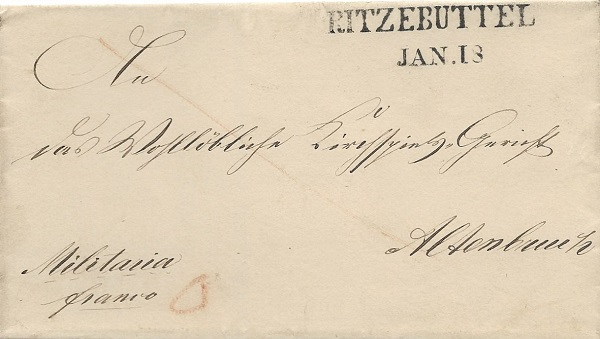 RITZEBUTTEL
JAN. 18
An
das Wohllöbliche Kirchspiels-Gericht
Altenbruch
Militaria
franco